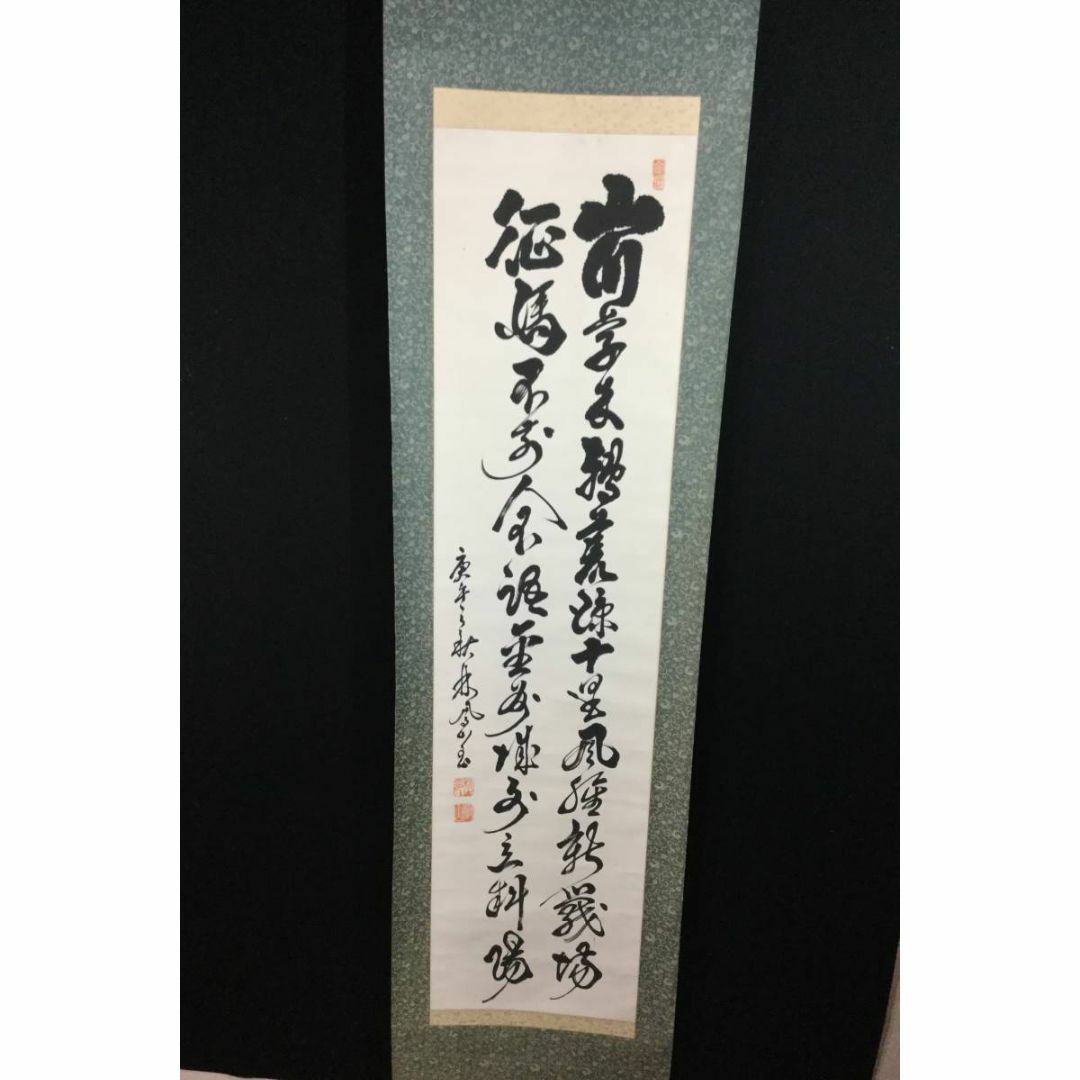 山川草木轉荒涼十里風腥新戰場
征馬不前人不語金州城外立斜陽
庚午之秋